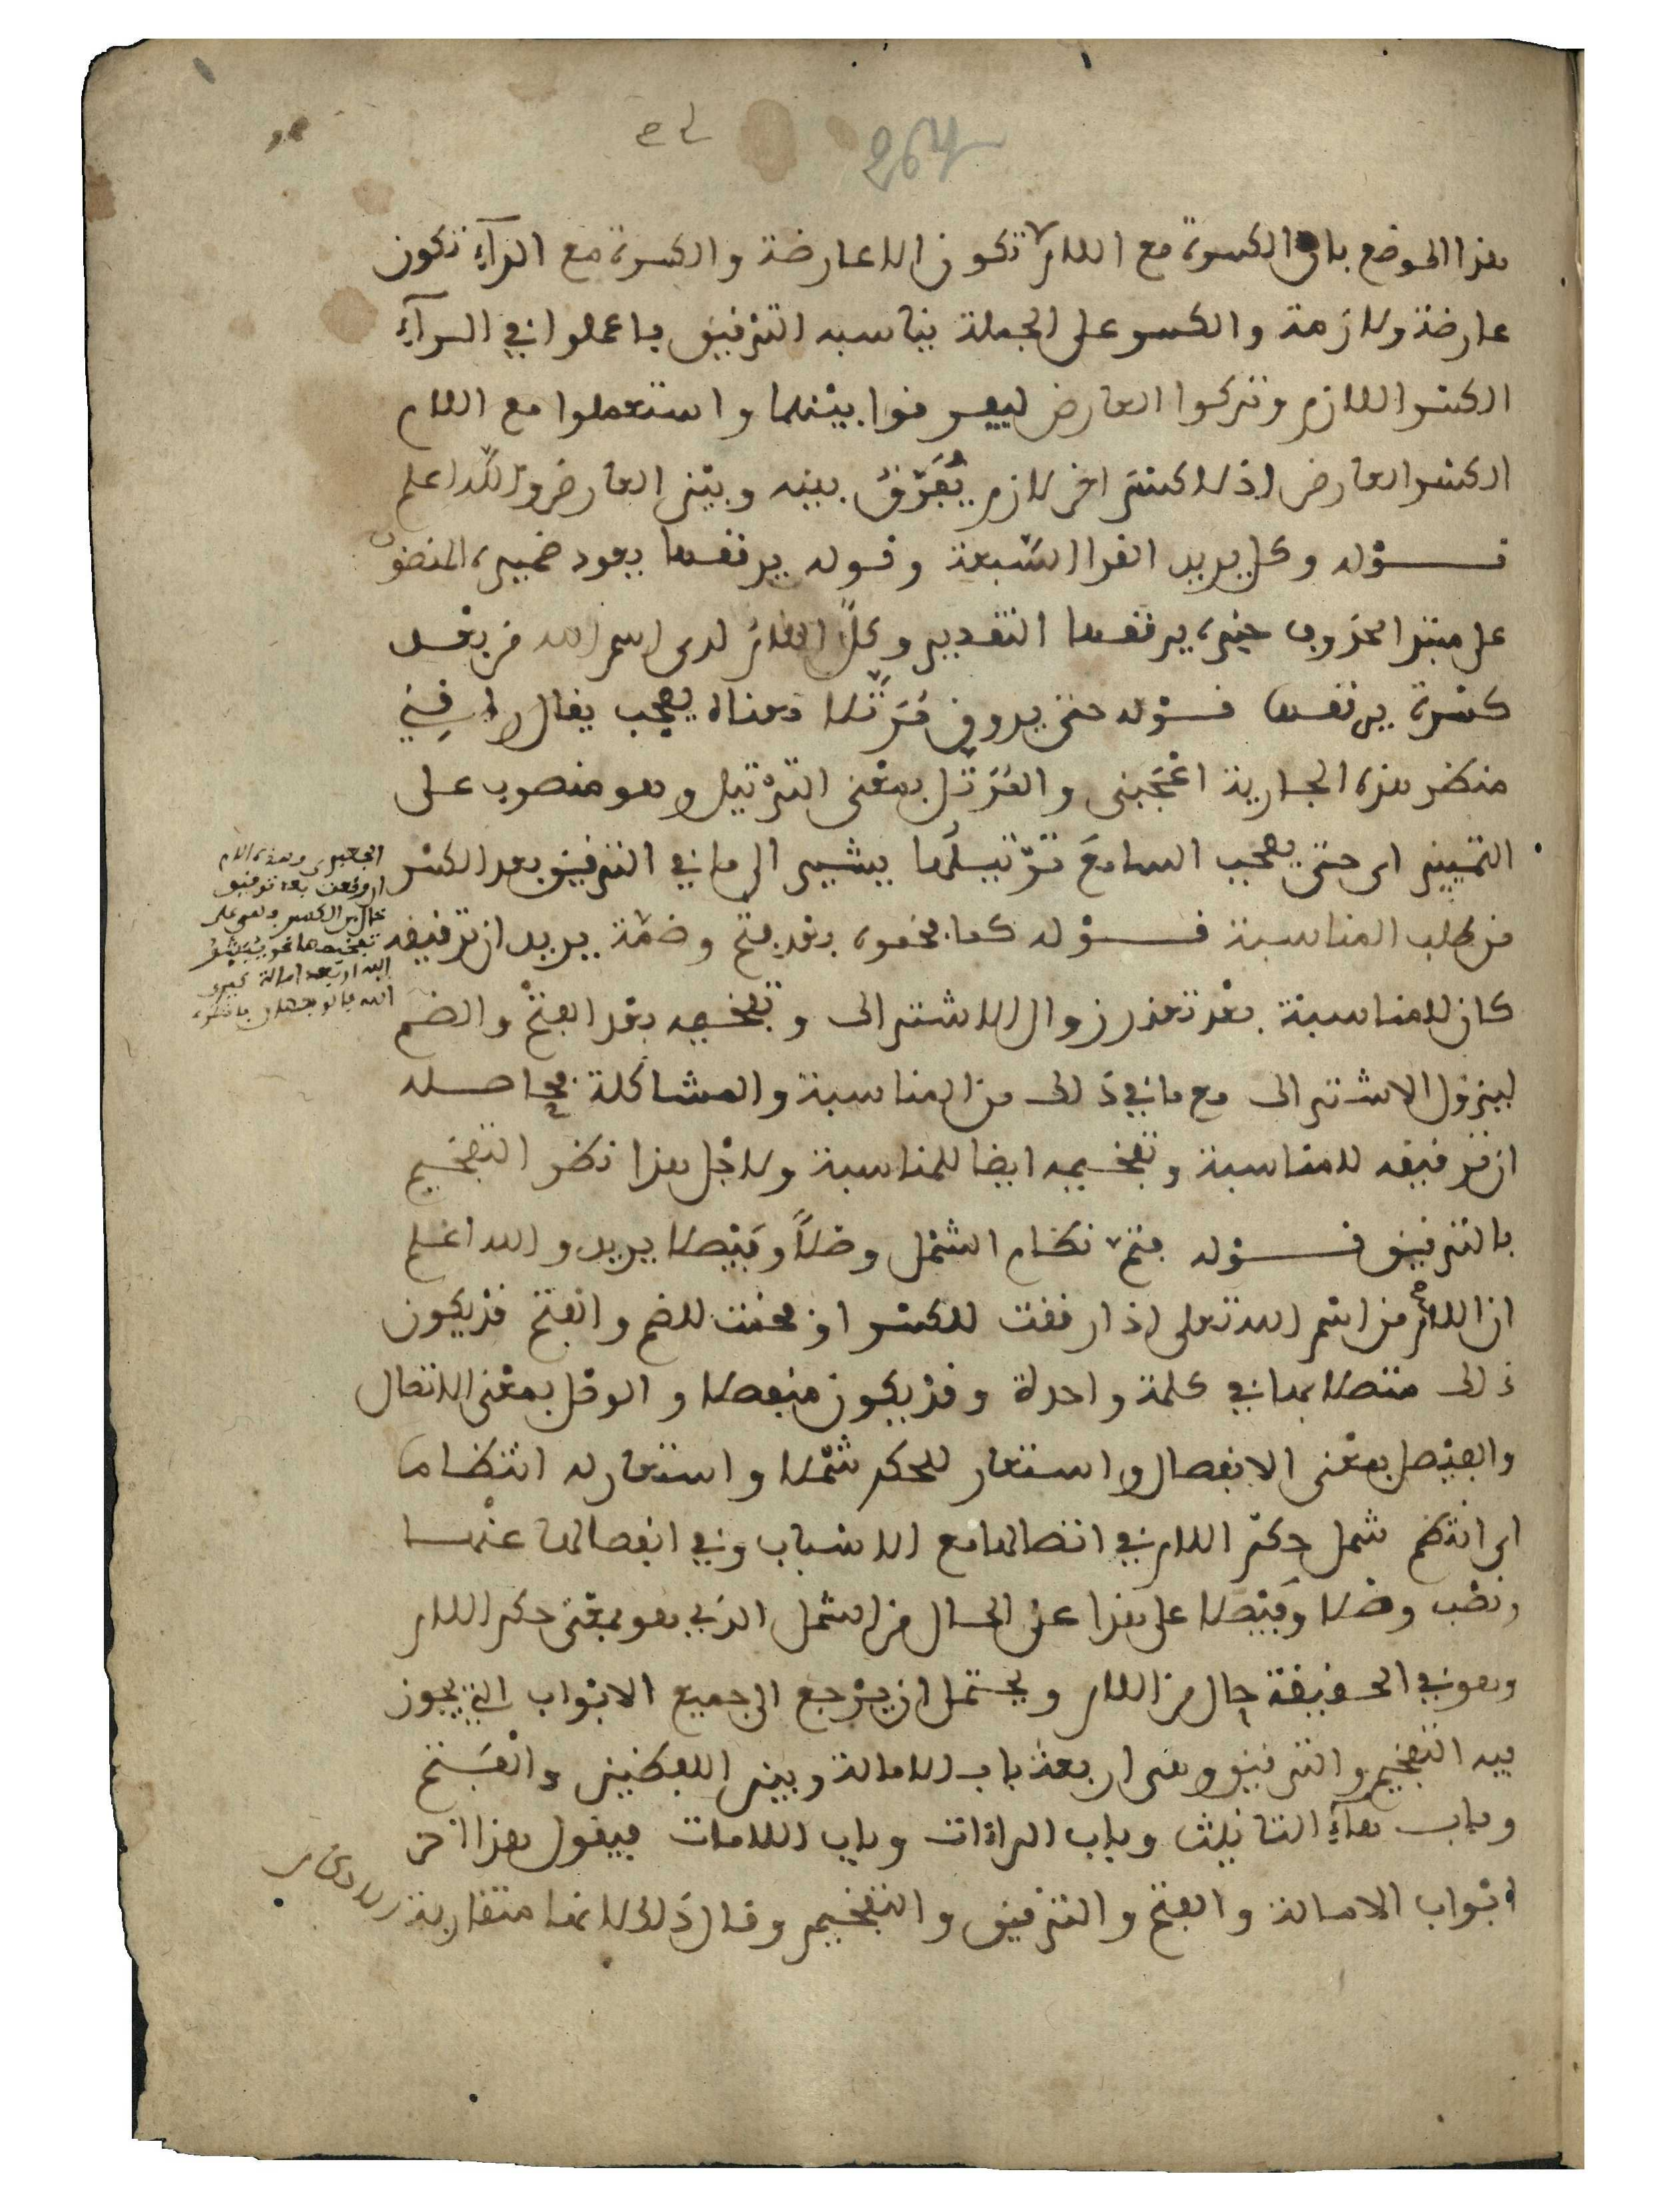 هذا الموضع بان الكسرة مع اللام لا تكون الا عارضة والكسرة مع الرآء تكون
عارضة ولازمة والكسر على الجملة يناسبه الترقيق فاعملوا في الرآء
الكسر اللازم وتركوا العارض ليفرقوا بينهما واستعملوا مع اللام
الكسر العارض اذ لا كسر اخر لازم يُفَرَّقُ بينه وبين العارض والله اعلم
قوله وكل يريد القرا السَّبعة وقوله يرققها يعود ضميره المنصوب
على مبتدا محذوف خبره يرققها التقدير وكلٌّ اللامُ لدى اسم الله من بعد
كسرة يرققها قوله حتى يروق مُرَتَّلا معناه يعجب يقال راقني
منظر هذه الجارية اعْجَبني والمُرَتَّل بمعْنى الترْتيل وهو منصوب على
التمييز اى حتى يعجب السامعَ ترْتيلُها يشير الى ما في الترقيق بعد الكسر
من طلب المناسبة قوله كما فخموه بعد فتح وضمّة يريد ان ترقيقه
كان للمناسبة بعْد تعذر زوال الاشتراك وتفخيمه بعْد الفتْح والضم
ليزول الاشتراك مع ما في ذَلك من المناسبة والمشاكلة فحاصله
ان ترقيقه للمناسبة وتفخيمه ايضا للمناسبة ولاجْل هذا نظر التفخيم
بالترقيق قوله فتمّ نظام الشمْل وصْلاً وفَيْصلا يريد والله اعلم
ان اللام من اسْم الله تعلى اذا رققت للكسر او فخمت للضم والفتح قدْ يكون
ذلك متصلا بها في كلمة واحدة وقدْ يكون منفصلا والوصْل بمعْنى الاتصال
والفيْصل بمعْنى الانفصال واستعار للحكم شمْلا واستعار له انتظاما
اى انتظم شمل حكم اللام في اتصالها مع الاسْباب وفي انفصالها عنْها
ونصْب وصْلا وفَيْصلا على هذا على الحال من الشمل الذي هو بمعْنى حكم اللام
وهو في الحقيقة حال من اللام ويحتمل ان يرْجع الى جميع الابْواب التي يجوز
فيه التفخيم والترقيق وهى اربعة باب الامالة وبين اللفظين والفَتح
وباب هآء التانيث وباب الراءات وباب اللامات فيقول هذا اخر
ابْواب الامالة والفتح والترقيق والتفخيم وقال ذَلك لانها متقاربة
الجعبرى وهذه اللام
ان وقعت بعد ترقيق
خال من الكسر فهى على
تفخيمها نحو يُبَشِّرُ
الله او بعد امالة كبرى